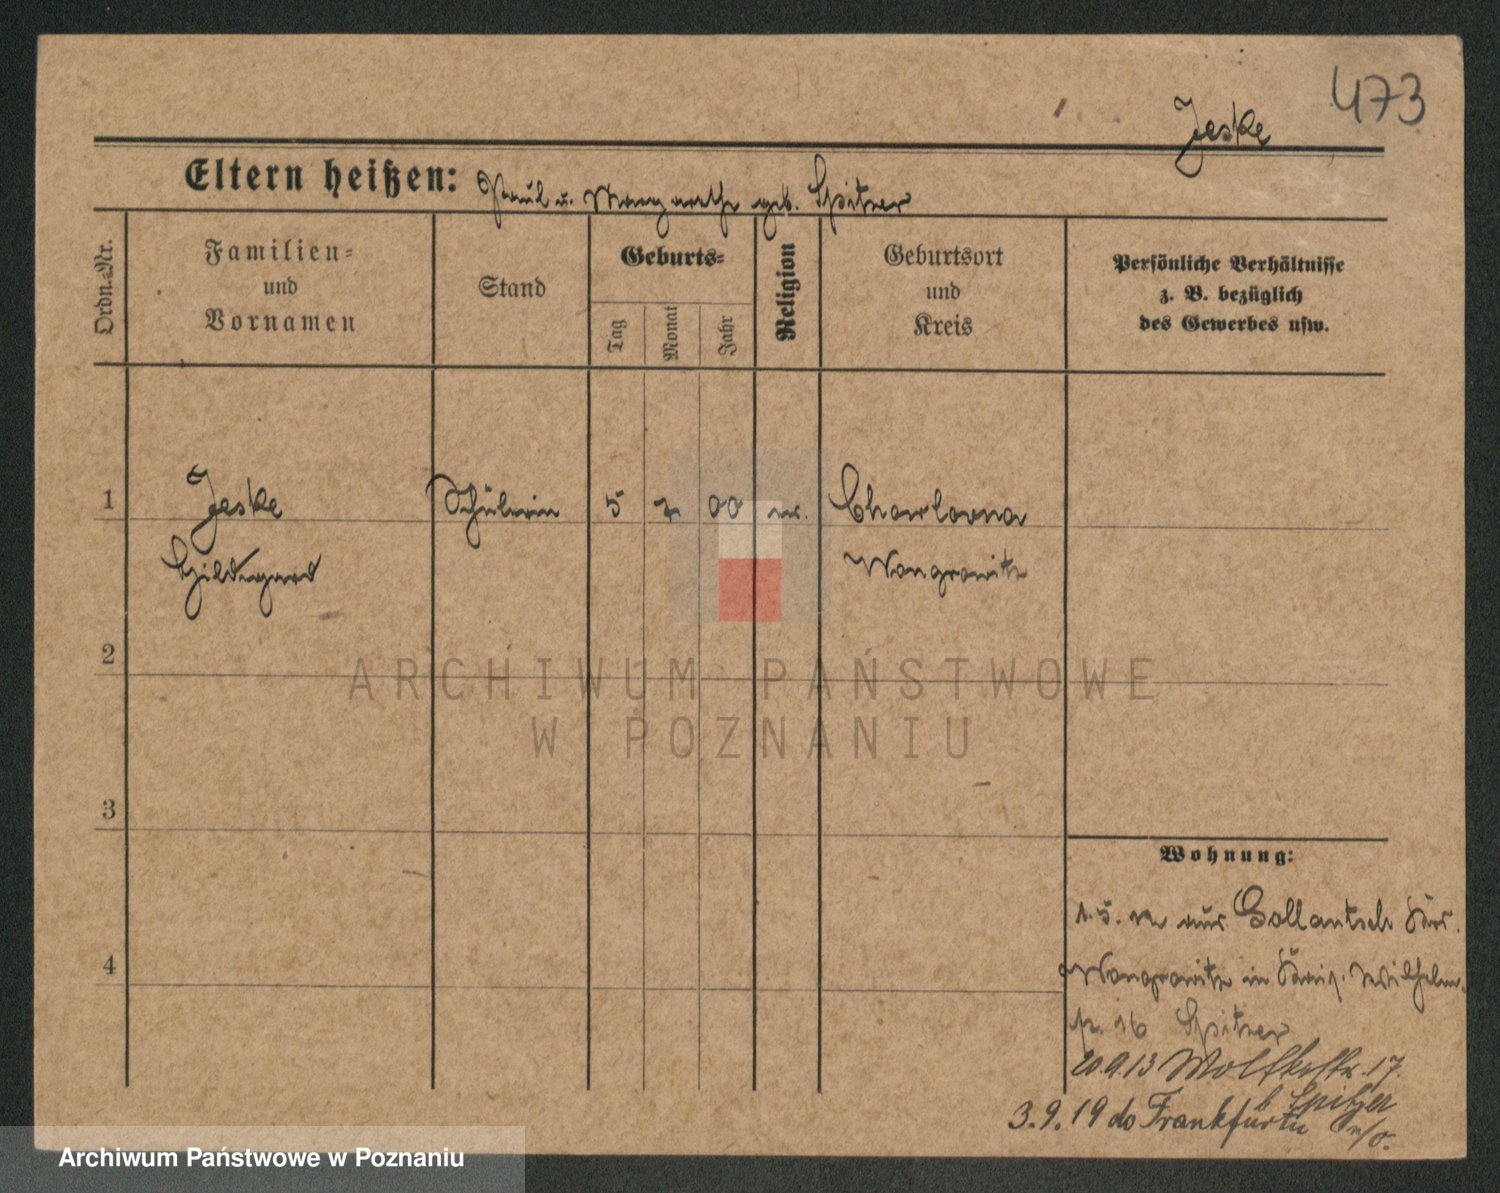 473
Jeske
Eltern heißen: Paul u. Margarethe geb. Spitzer
Ordn.-Nr.
Familien-
und
Vornamen
Stand
Geburts-
Tag
Monat
Jahr
Religion
Geburtsort
und
Kreis
Persönliche Verhältnisse
z. B. bezüglich
des Gewerbes usw.
1
Jeske Schülerin 5 7 00 ev.
Hildegard Wongrowitz
2
ARCHIWUM PAŃSTWOWE
W POZNANIU
3
Wohnung:
1.5. aus Gollantsch Krs.
4
Wongrowitz in Wilhelm-
16 Spitzer
20.9.13 17.
b Spitzer
3.9.19 do Frankfurtu n/O.
Archiwum Państwowe w Poznaniu